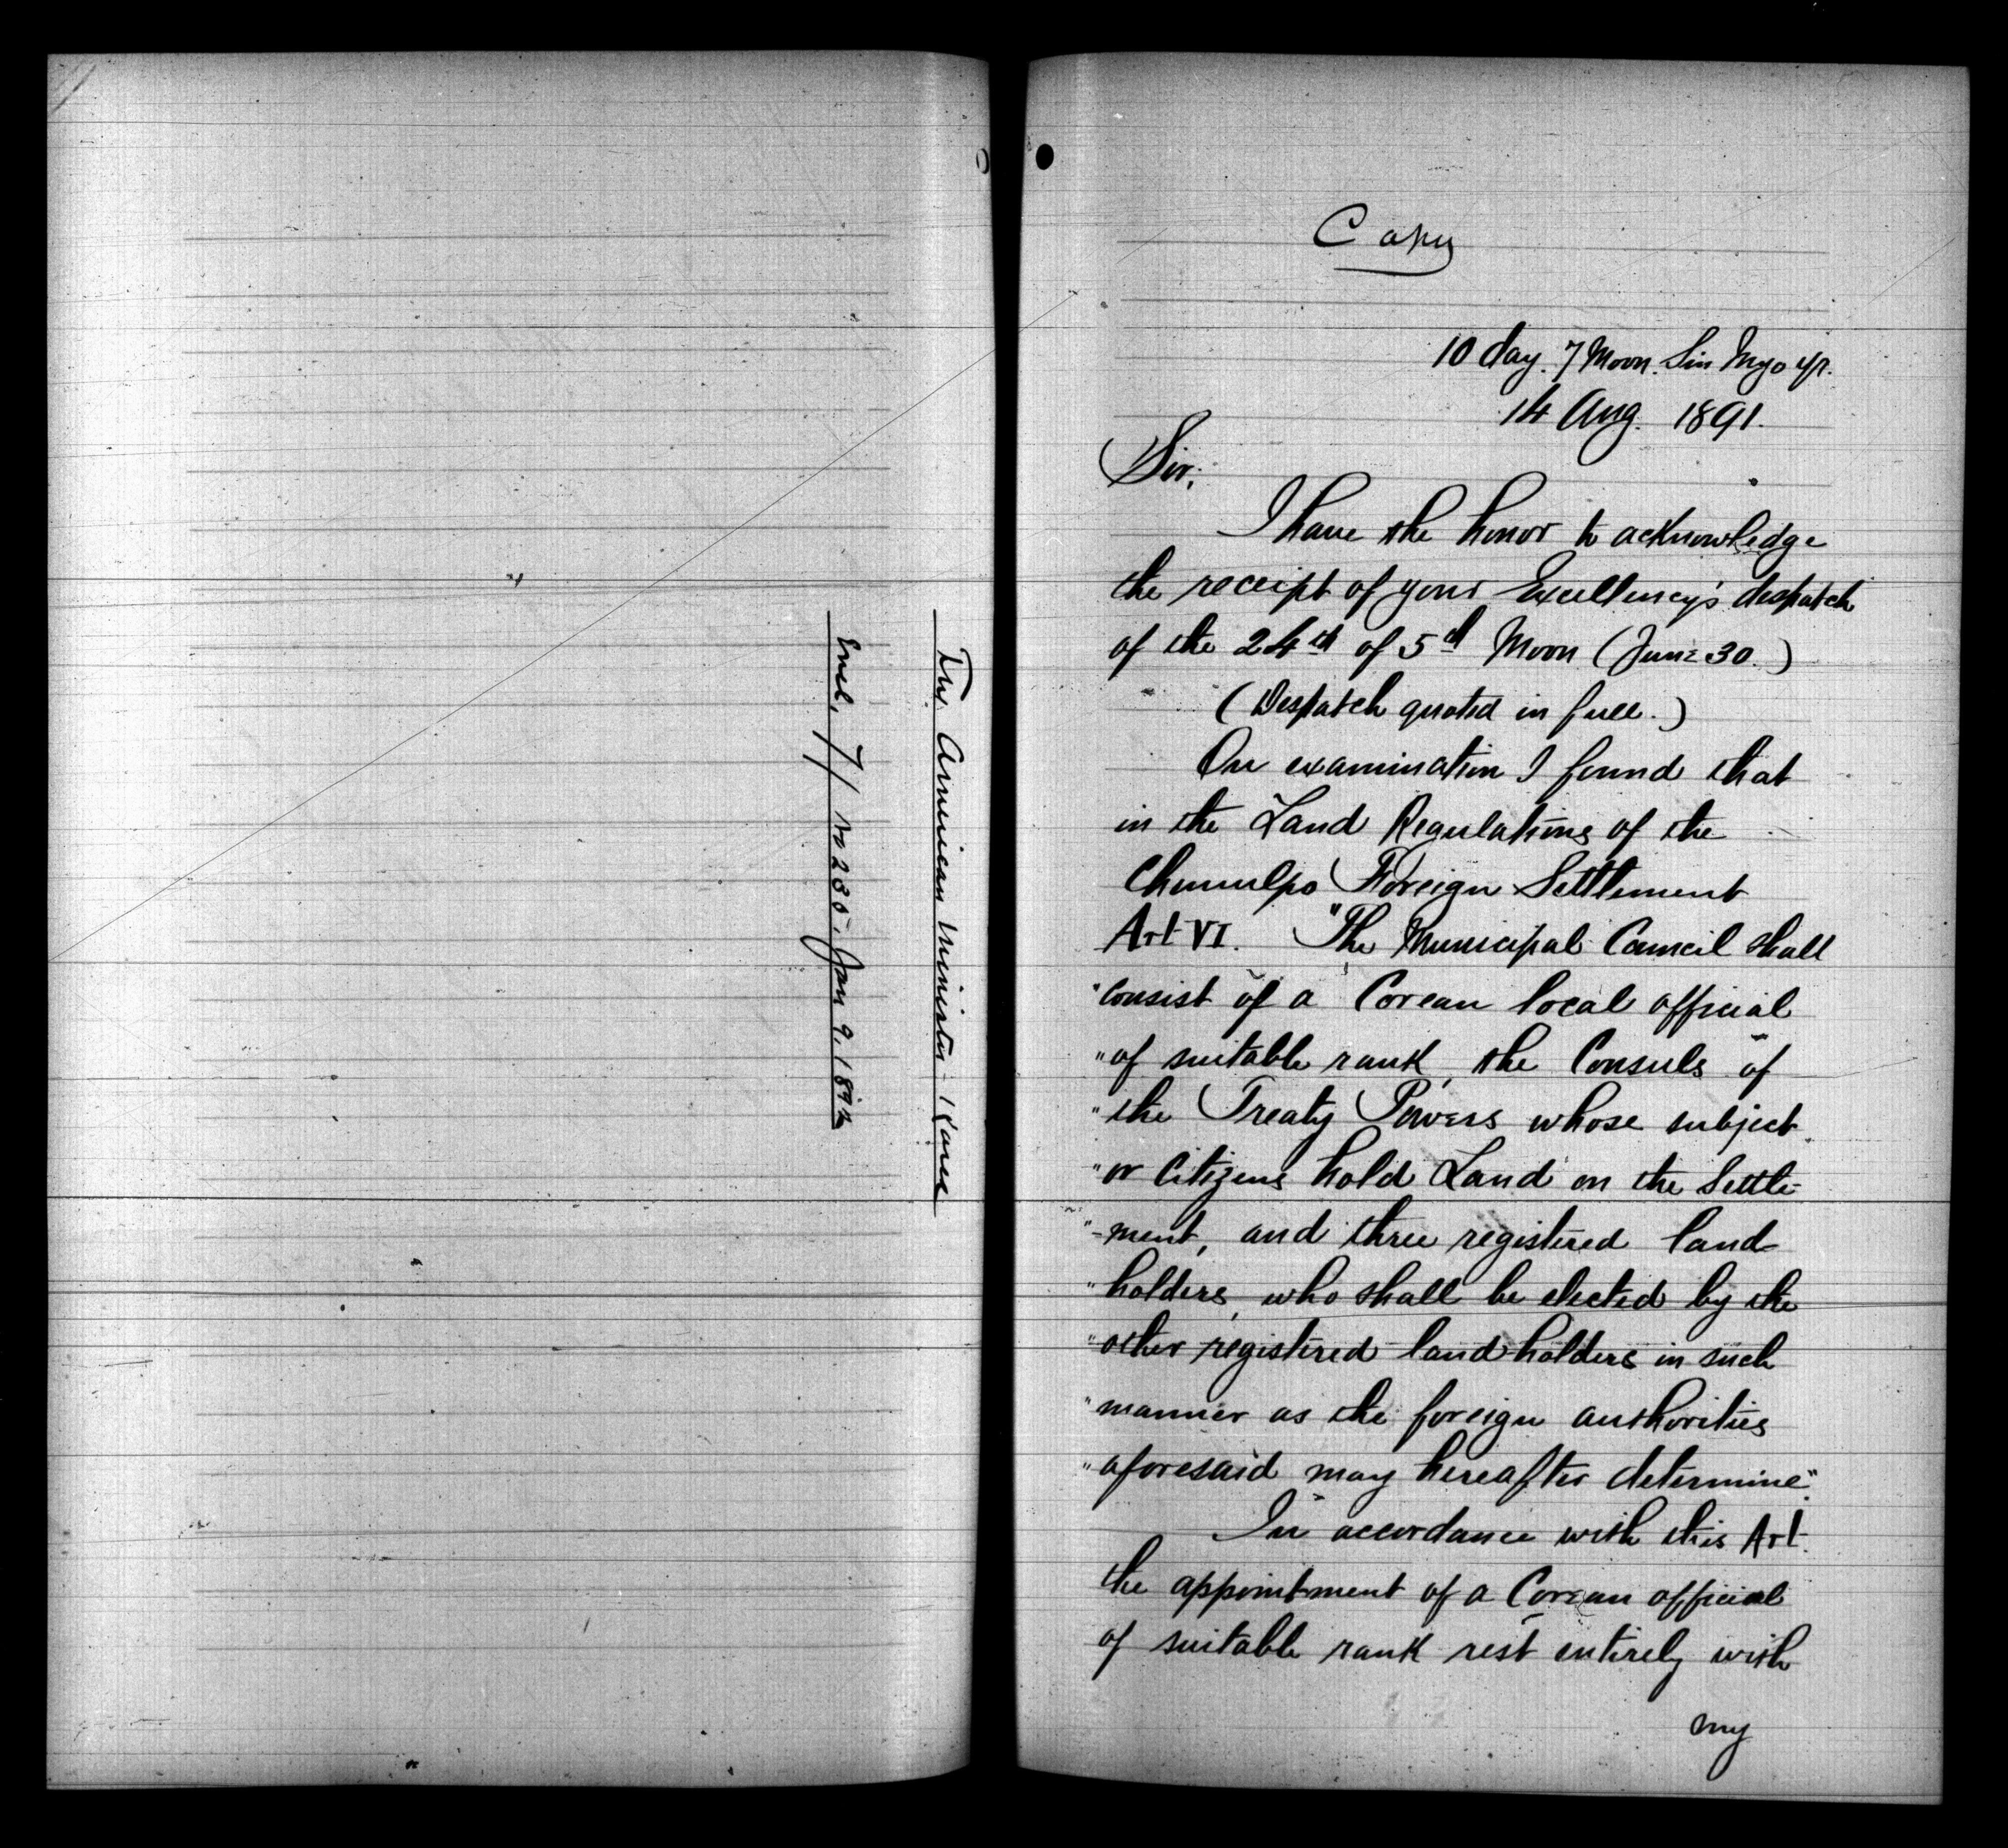 The American Minister - Korea
Encl. 7/ No 235. Jan 9. 1892
Copy
10 day. 7 Moon. Sin Myo yr.
14 Aug. 1891.
Sir;
I have the honor to acknowledge
the receipt of your Excellency's despatch
of the 24th of 5th Moon (June 30.)
(Despatch quoted in full.)
On examination I found that
in the Land Regulations of the
Chemulpo Foreign Settlement
Art VI. "The Municipal Council shall
"consist of a Corean local official
"of suitable rank, the Consuls of
"the Treaty Powers whose subject
"or Citizens hold Land on the Settle-
"-ment, and three registered land-
"holders, who shall be elected by the
"other registered land holders in such
"manner as the foreign authorities
"aforesaid may hereafter determine".
In accordance with this Art.
the appointment of a Corean official
of suitable rank rest entirely with
my